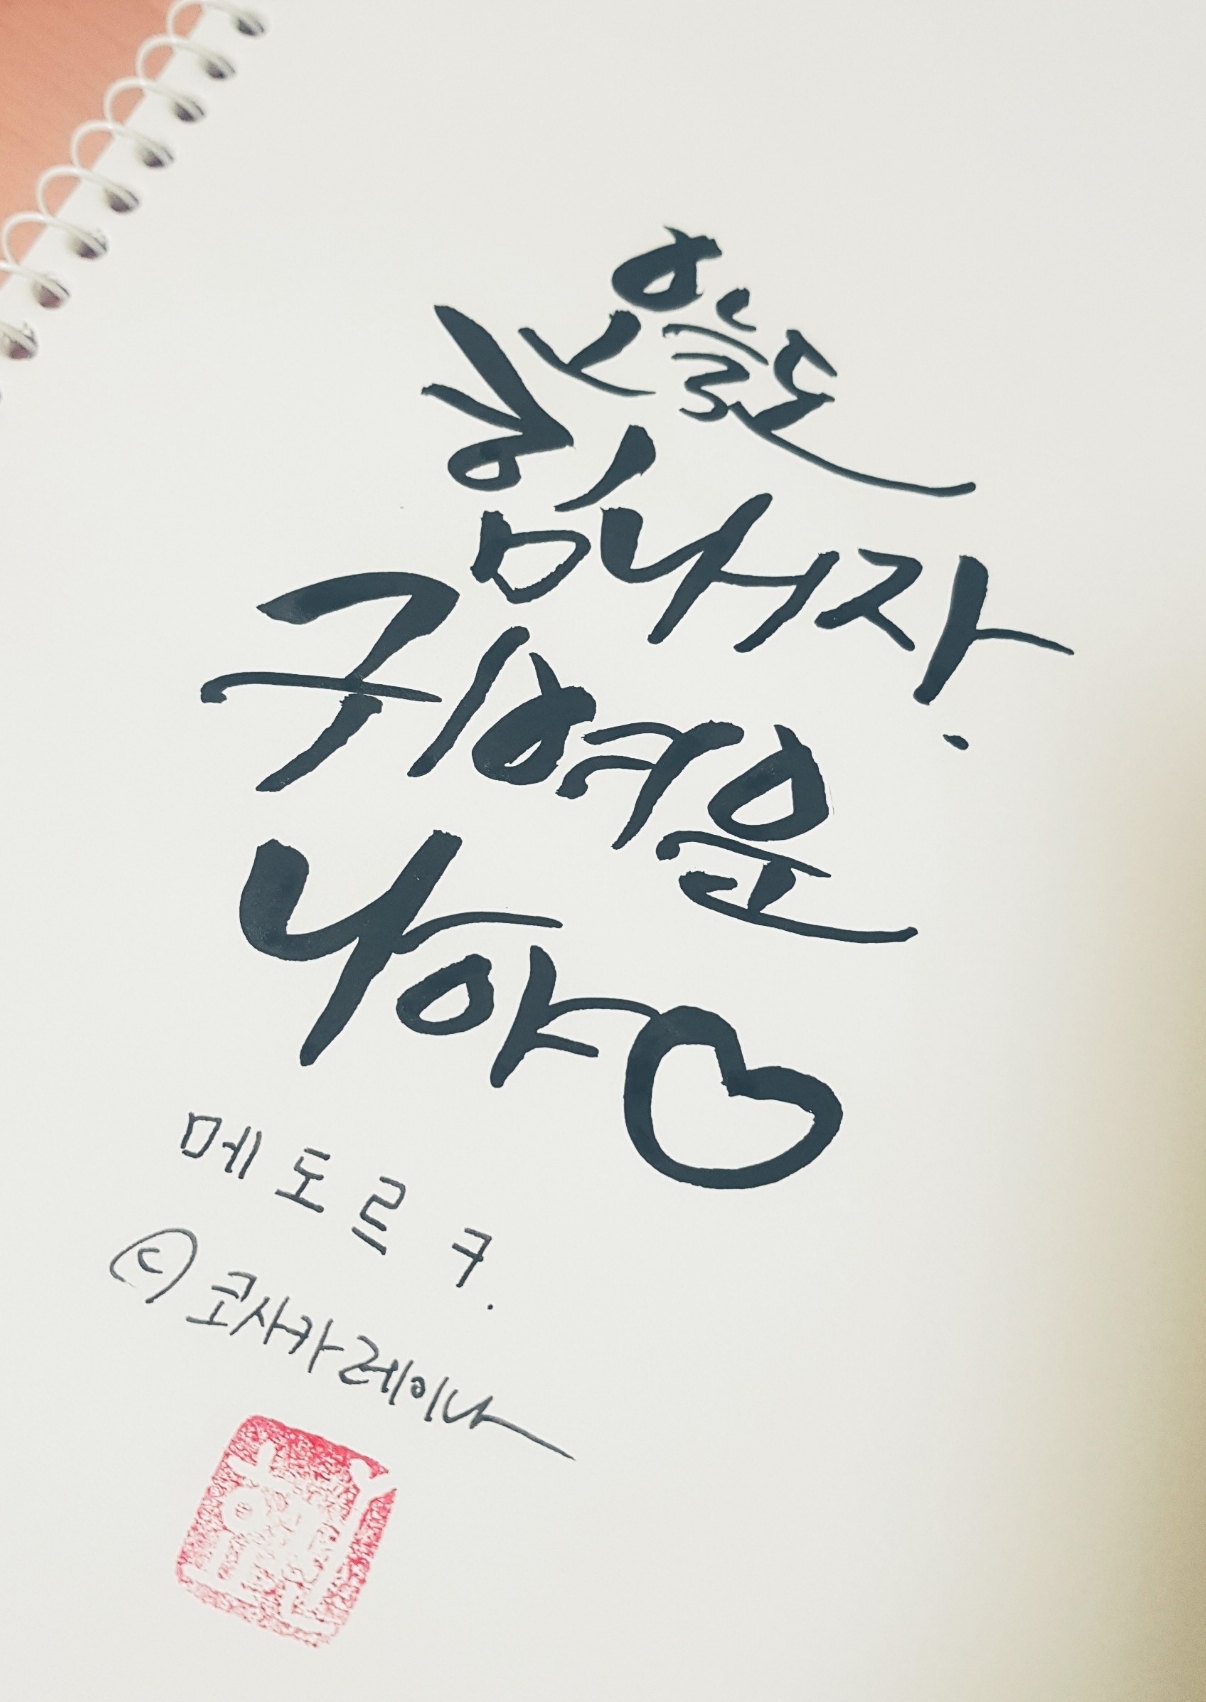 오늘도
힘내자.
귀여운
나야♡
메도르ㅋ.
ⓒ코사카레이나